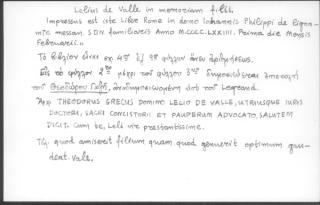 Lelius de Valle in memoriam filii.
Impressus est iste Libre Rome in domo Iohannis Philippi de Ligna-
mine messan. S.D.N. familiaris Anno M.CCCC.LXXIIII. Prima die Mensis
Februarii.
Τὸ βιβλίον εἶναι εἰς 4ον ἐξ φύλλων ἄνευ ἀριθμήσεως.
Εἰς τὸ φύλλον 2 μέχρι τοῦ φύλλου 3 δημοσιεύεται ἐπιστολὴ
τοῦ Θεοδώρου Γαζῆ, ὑπὸ τοῦ Legrand.
Ἀρχ. THEODORUS GRECUS DOMINO LELIO DE VALLE, UTRIUSQUE IURIS
DOCTORI, SACRI CONSISTORII ET PAUPERUM ADVOCATO, SALUTEM
DICIT. Cum te, Leli vir prestantissime.
Τέλ. quod amiserit filium quam quod genuerit optimum gau-
deat. Vale.